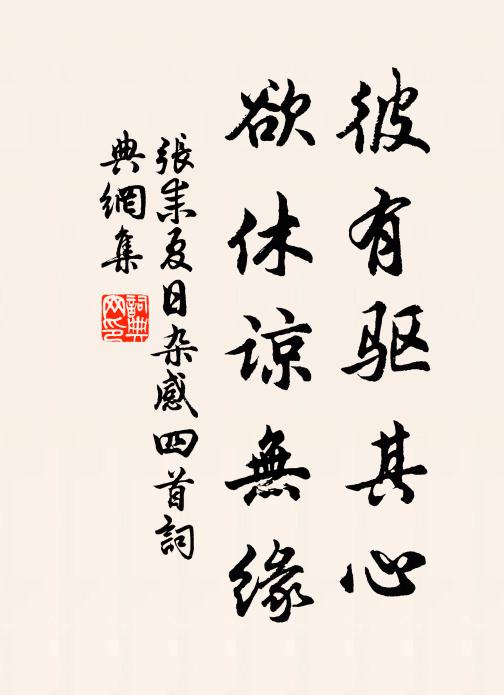 彼有驱其心
欲休谅無缘
張耒夏日杂感四首詞
典網集
詞典
网印